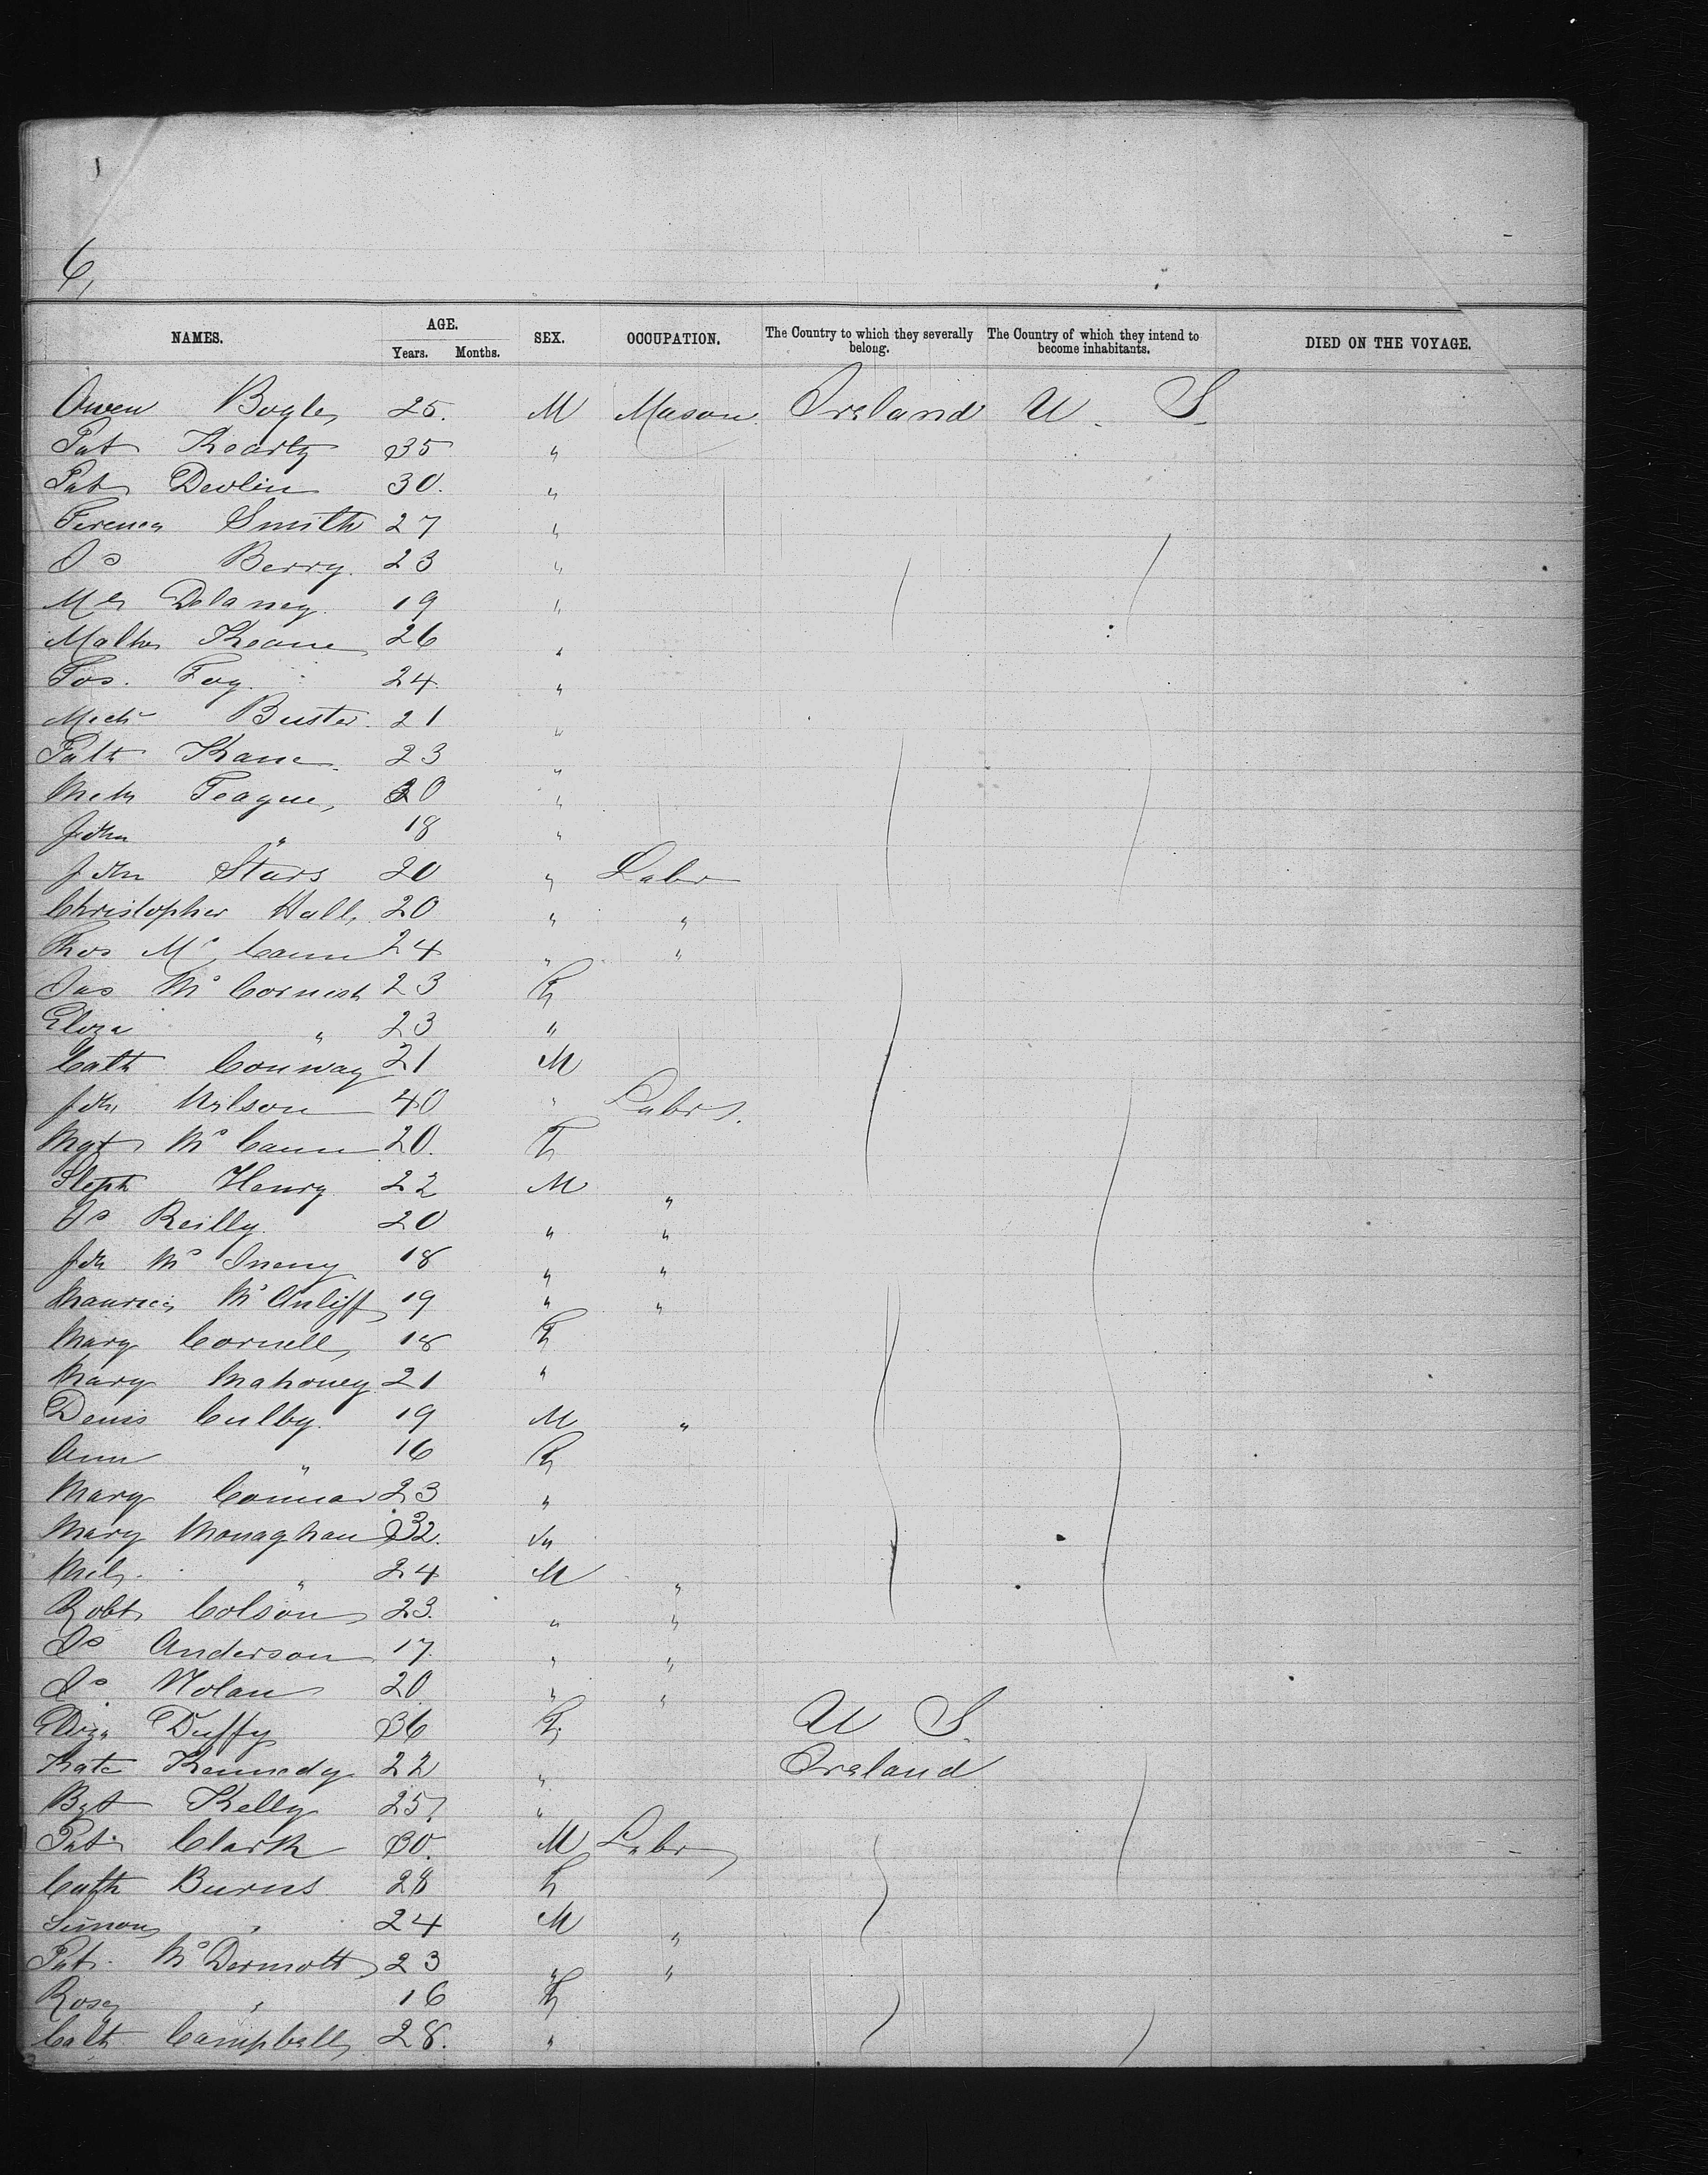 6,
NAMES. AGE. SEX. OCCUPATION. The Country to which they severally belong. The Country of which they intend to become inhabitants. DIED ON THE VOYAGE.
Years. Months.
Owen Bogle 25. M Mason Ireland U. S.
Pat Kearty 35 "
Pat Devlin 30. "
Smith 27 "
Js Berry. 23 "
Delaney. 19 "
Keane 26 "
Foy. 24. "
Buster. 21 "
Patk Kane. 23 "
Teague, 20 "
John " 18 "
John Stars 20 " Labr
Christopher Hall, 20 " "
Thos Mc Cann 24 " "
Jas Mc Cornish 23 F
Eliza " 23 "
Cath Conway 21 M
Jon Wilson 40 " Labr.
Mgt Mc Cann 20. F
Steph Henry 22 M "
Js Reilly. 20 " "
Jon Mc Ineny 18 " "
Maurice Mc Auliff 19 " "
Mary Cornell, 18 F
Mary Mahoney 21 "
Denis Culby. 19 M "
Ann " 16 F
Mary Connor 23 "
Mary Monaghan 32. "
" 24 M "
Robt Colson 23. " "
Js Anderson 17. " "
Js Nolan 20 " "
Eliza Duffy 36 F U S.
Kate Kennedy 22 " Ireland
Bgt Kelly 25 "
Pat Clark 30. M Labr
Cath Burns 28 F
Simon " 24 M "
Pat. Mc Dermott 23 " "
Rose " 16 F
Cath Campbell 28. "